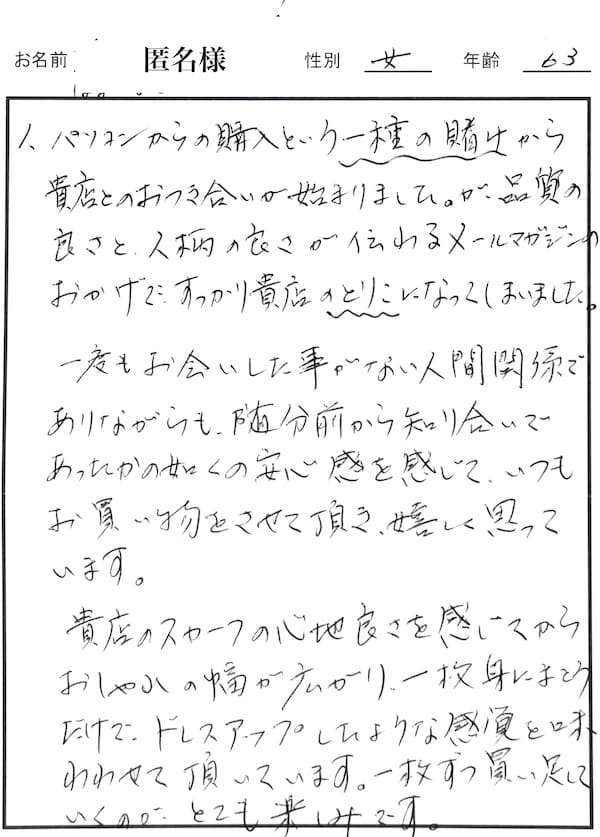 お名前 匿名様 性別 女 年齢 63
1、パソコンからの購入という一種の賭けから
貴店とのおつき合いが始まりました。が、品質の
良さと、人柄の良さが伝わるメールマガジンの
おかげで、すっかり貴店のとりこになってしまいました。
一度もお会いした事がない人間関係で
ありながらも、随分前から知り合いで
あったかの如くの安心感を感じて、いつも
お買い物をさせて頂き、嬉しく思って
います。
貴店のスカーフの心地良さを感じてから
おしゃれの幅が広がり、一枚身にまとう
だけで、ドレスアップしたような感覚を味
わわせて頂いています。一枚ずつ買い足して
いくのが、とても楽しみです。